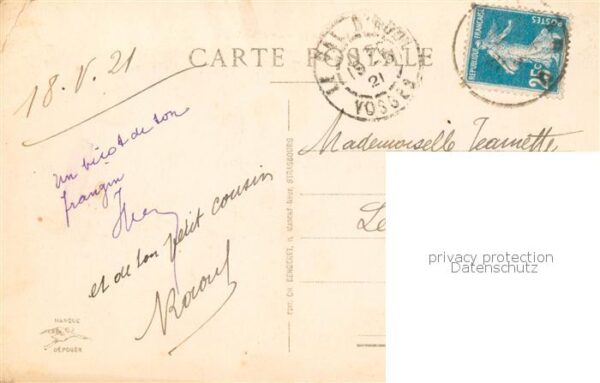 CARTE POSTALE
18.V.21
LE VAL D'AJOL
21
VOSGES
REPUBLIQUE FRANÇAISE
POSTES
25c
Mademoiselle Jeannette
Le
privacy protection
Datenschutz
Un bécot de ton
frangin
et de ton petit cousin
Raoul
MARQUE
DÉPOSÉE
STRASBOURG